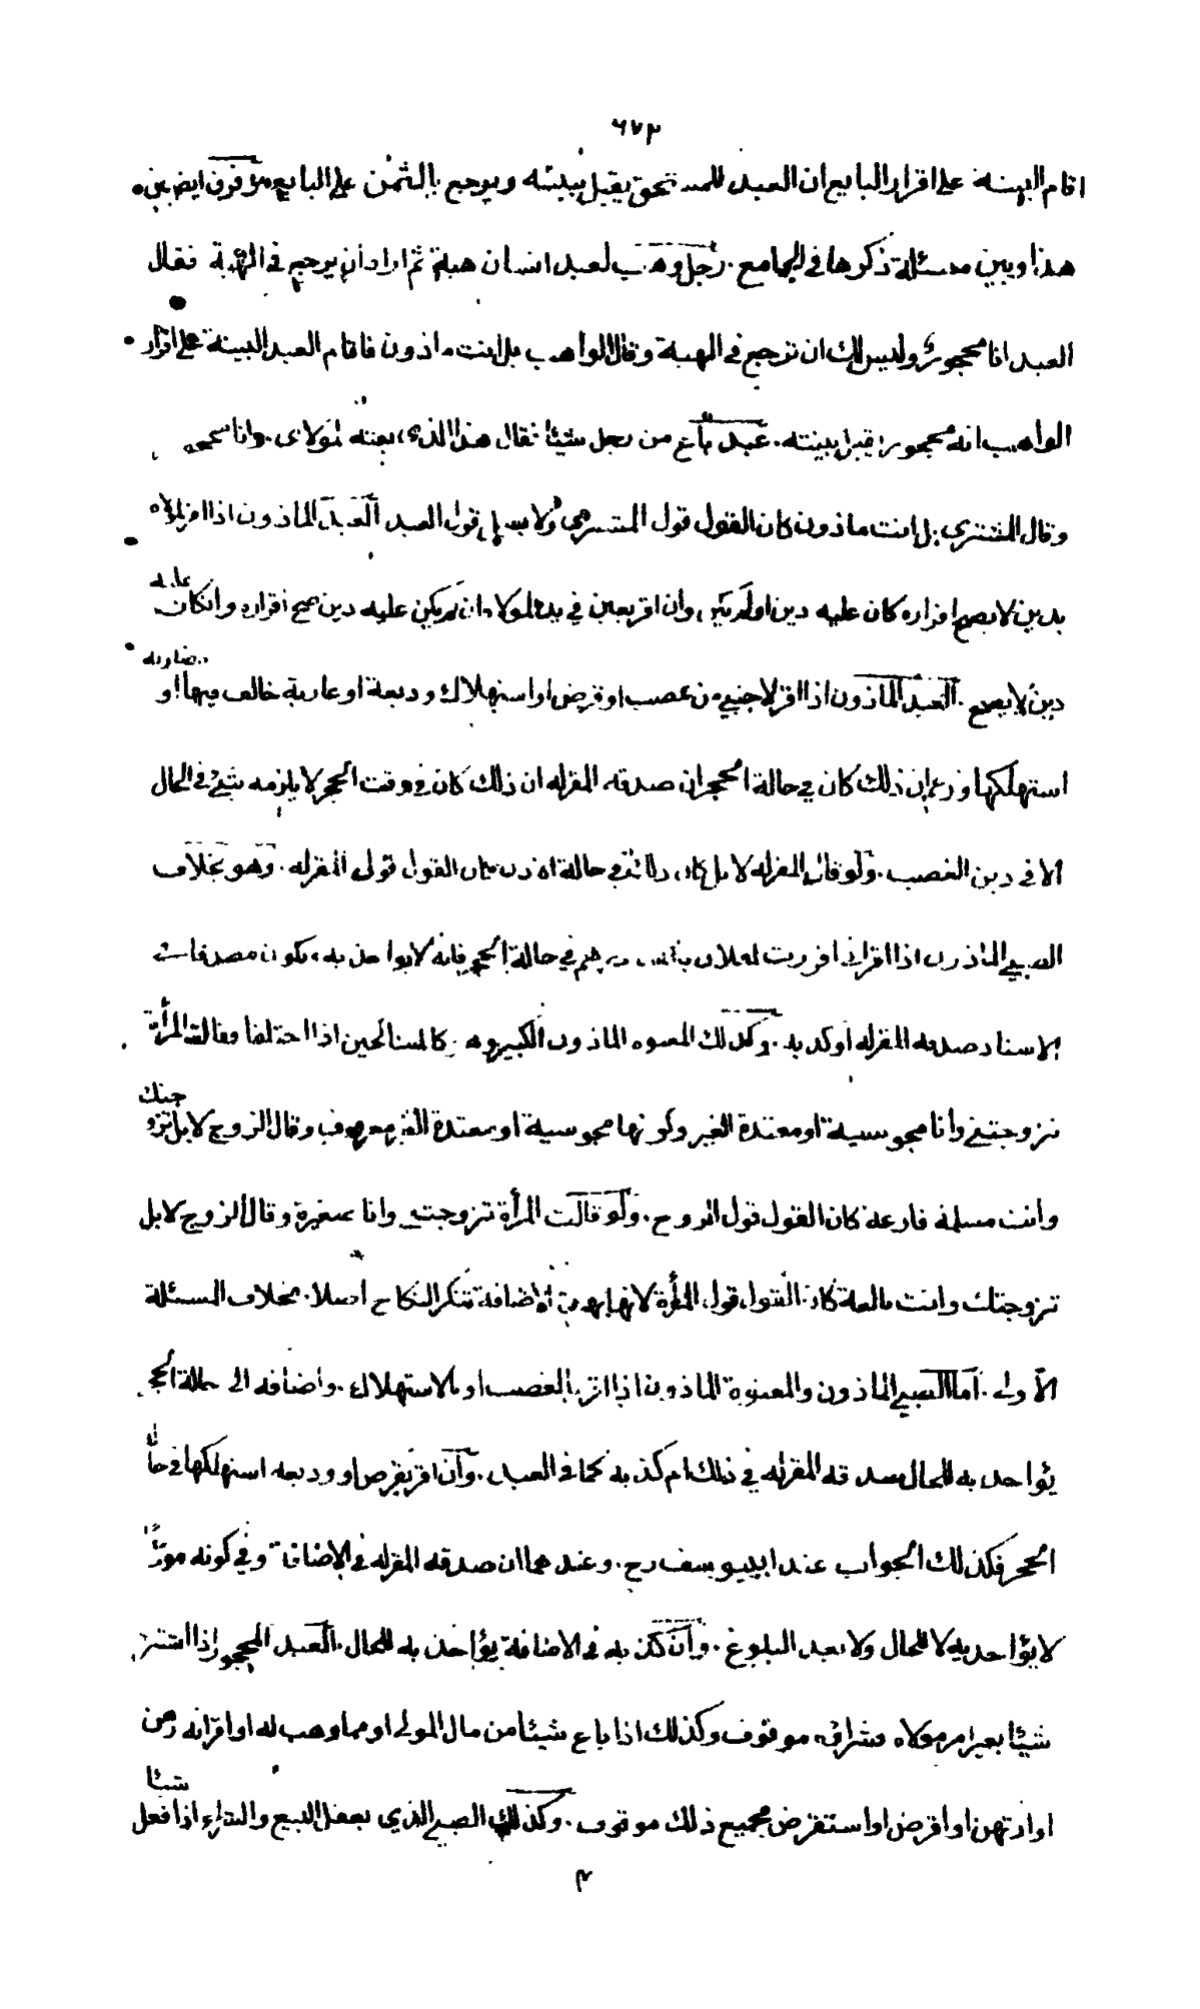 ٦٧٢
اقام البينة على اقرار البايع ان العبد للمستحق يقبل بينته ويرجع بالثمن على البايع وفرق ايضا بين
هذا وبين مسئلة ذكرها في الجامع . رجل وهب لعبد انسان هبة ثم اراد ان يرجع في الهبة فقال
العبد انا محجور وليس لك ان ترجع في الهبة وقال الواهب بل انت ماذون فاقام العبد البينة على اقرار
الواهب انه محجور قبل بينته . عبد باع من رجل شيئا فقال هذا الذي بعته لمولاي وانا محجور
وقال المشتري بل انت ماذون كان القول قول المشتري ولا يسأل قول العبد العبد الماذون اذا اقر لمولاه
بدين لا يصح اقراره كان عليه دين او لم يكن وان اقر بعين في يده لمولاه ان لم يكن عليه دين صح اقراره وان كان عليه
دين لا يصح . العبد الماذون اذا اقر لاجنبي من غصب او قرض او استهلاك وديعة او عارية خالف فيها او مضاربة
استهلكها وزعم ان ذلك كان في حالة الحجر ان صدقه المقرله ان ذلك كان في وقت الحجر لا يلزمه شئ في الحال
الا في دين الغصب . ولو قال المقرله لا بل كان ذلك في حالة الاذن كان القول قول المقرله . وهو بخلاف
الصبي الماذون اذا اقر اني اقررت لفلان بالف درهم في حالة الحجر فانه لا يواخذ به ، يكون مصدقا في
الاسناد صدقه المقرله او كذبه . وكذلك المعتوه الماذون الكبير وهو كالمسنا لحين اذا اختلفا وقالت المرأة
تزوجتني وانا مجوسية او معتدة الغير وكونها مجوسية او معتدة الغير معروف وقال الزوج لا بل تزوجتك
وانت مسلمة فارغة كان القول قول الزوج . ولو قالت المرأة تزوجتني وانا صغيرة وقال الزوج لا بل
تزوجتك وانت بالغة كان القول قول المرأة لانها بهذه الاضافة تنكر النكاح اصلا . بخلاف المسئلة
الاولى . اما الصبي الماذون والمعتوه الماذون اذا اقر بالغصب او بالاستهلاك . واضافه الى حالة الحجر
يواخذ به للحال صدقه المقرله في ذلك ام كذبه كما في العبد . وان اقر بقرض او وديعه استهلكها في حالة
الحجر فكذلك الجواب عند ابي يوسف رح . وعندهما ان صدقه المقرله في الاضافة وفي كونه مودعا
لا يؤاخذ به لا للحال ولا بعد البلوغ . وان كذبه في الاضافة يؤاخذ به للحال . العبد المحجور اذا اشترى
شيئا بغير امر مولاه فشراؤه موقوف وكذلك اذا باع شيئا من مال المولى او مما وهب له او اقر انه رهن
او ارتهن او اقرض او استقرض فجميع ذلك موقوف . وكذلك الصبي الذي يعقل البيع والشراء اذا فعل شيئا